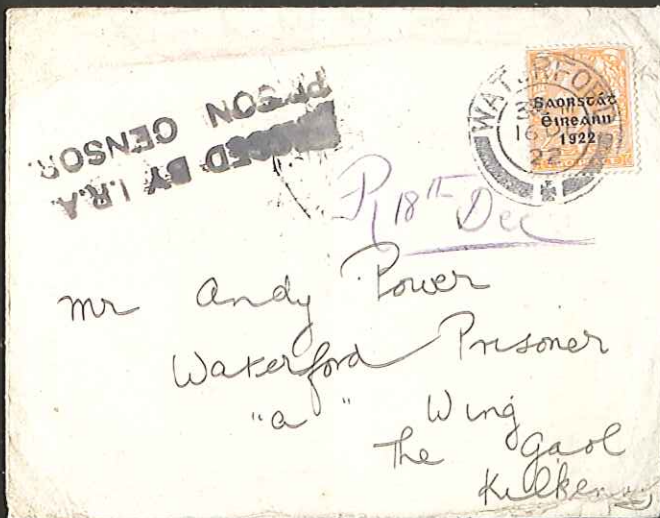 PASSED BY I.R.A.
PRISON CENSOR.
WATERFORD
16 DE
22
Saorstát
Éireann
1922
R 18th Dec
Mr Andy Power
Waterford Prisoner
"a" Wing
The Gaol
Kilkenny